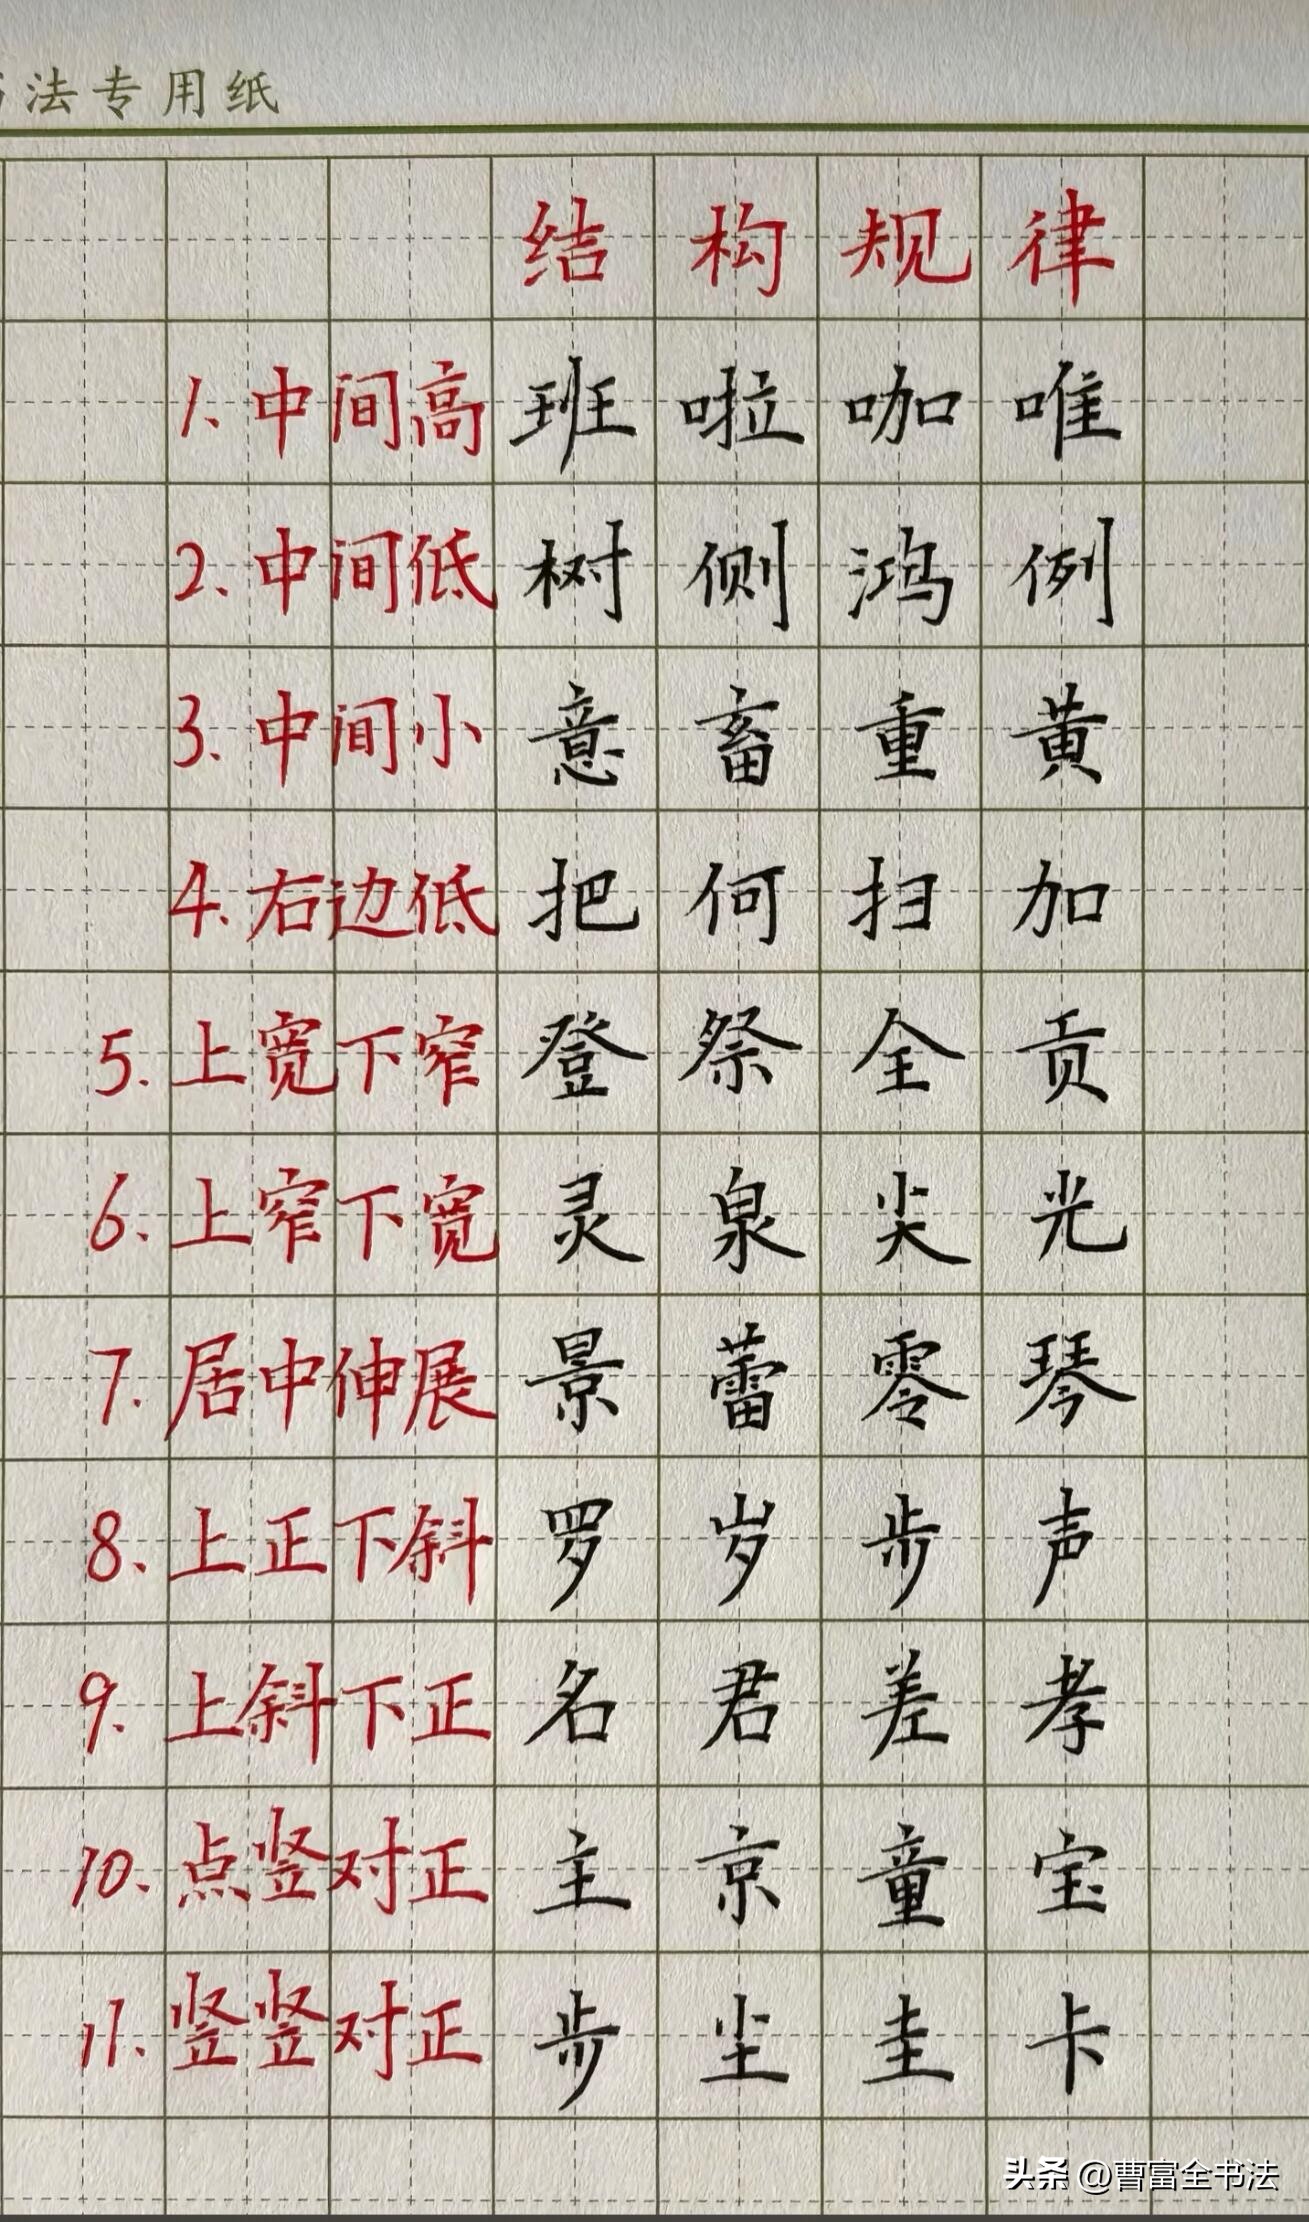 法专用纸
结构规律
1、中间高 班 啦 咖 唯
2、中间低 树 侧 鸿 例
3、中间小 意 畜 重 黄
4、右边低 把 何 扫 加
5、上宽下窄 登 祭 全 贡
6、上窄下宽 灵 泉 尖 光
7、居中伸展 景 蕾 零 琴
8、上正下斜 罗 岁 步 声
9、上斜下正 名 君 差 孝
10、点竖对正 主 京 童 宝
11、竖竖对正 步 尘 圭 卡
头条 @曹富全书法